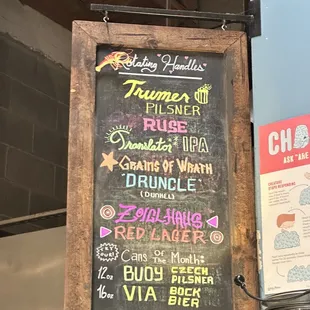 Rotating "Handles"
Trumer
PILSNER
RUSE
Translator IPA
GRAINS OF WRATH
"DRUNCLE"
(DUNKEL)
ZOIGLHAUS
RED LAGER
TRY OUR!
Cans Of The Month!
12oz BUOY CZECH PILSNER
16oz VIA BOCK BIER
CHO
ASK "ARE